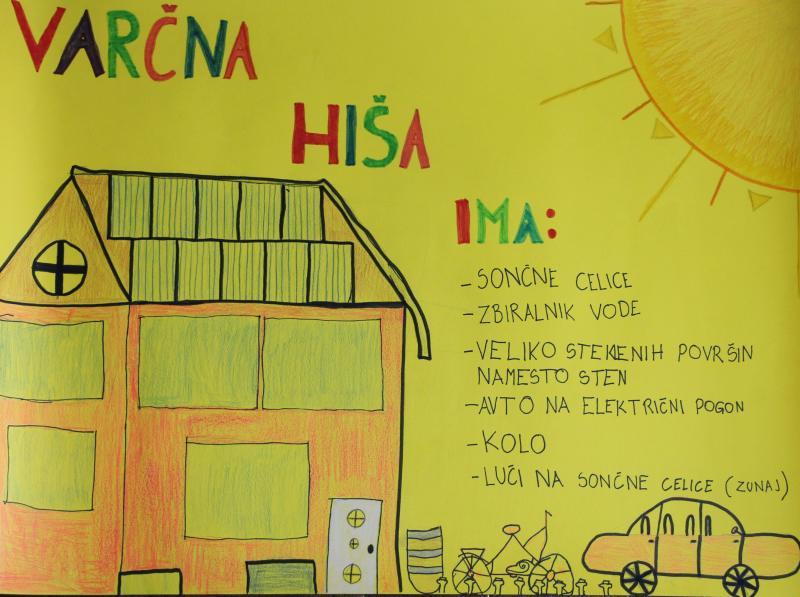 VARČNA
HIŠA
IMA:
- SONČNE CELICE
- ZBIRALNIK VODE
- VELIKO STEKLENIH POVRŠIN
NAMESTO STEN
- AVTO NA ELEKTRIČNI POGON
- KOLO
- LUČI NA SONČNE CELICE (ZUNAJ)